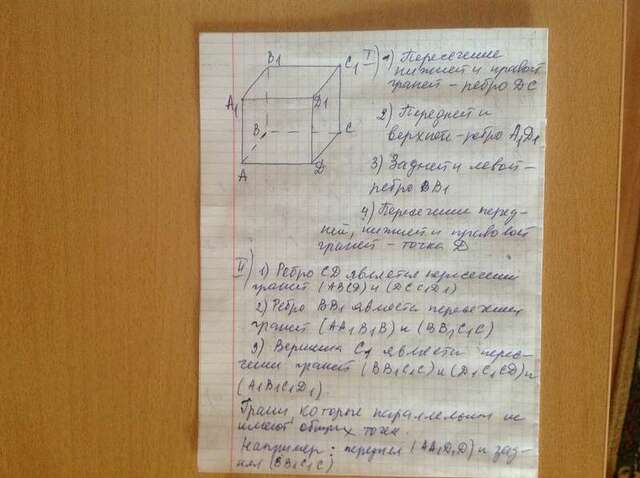 I) 1) Пересечение
нижней и правой
граней - ребро DC
2) Передней и
верхней - ребро A1D1
3) Задней и левой -
ребро BB1
4) Пересечение перед-
ней, нижней и правой
граней - точка D
B1
C1
A1
D1
B
C
A
D
II) 1) Ребро CD является пересечением
граней (ABCD) и (DCC1D1)
2) Ребро BB1 является пересечением
граней (AA1B1B) и (BB1C1C)
3) Вершина C1 является пересе-
чением граней (BB1C1C) и (D1C1CD) и
(A1B1C1D1).
Грани которые параллельны не
имеют общих точек.
Например: передняя (AA1D1D) и зад-
няя (BB1C1C)